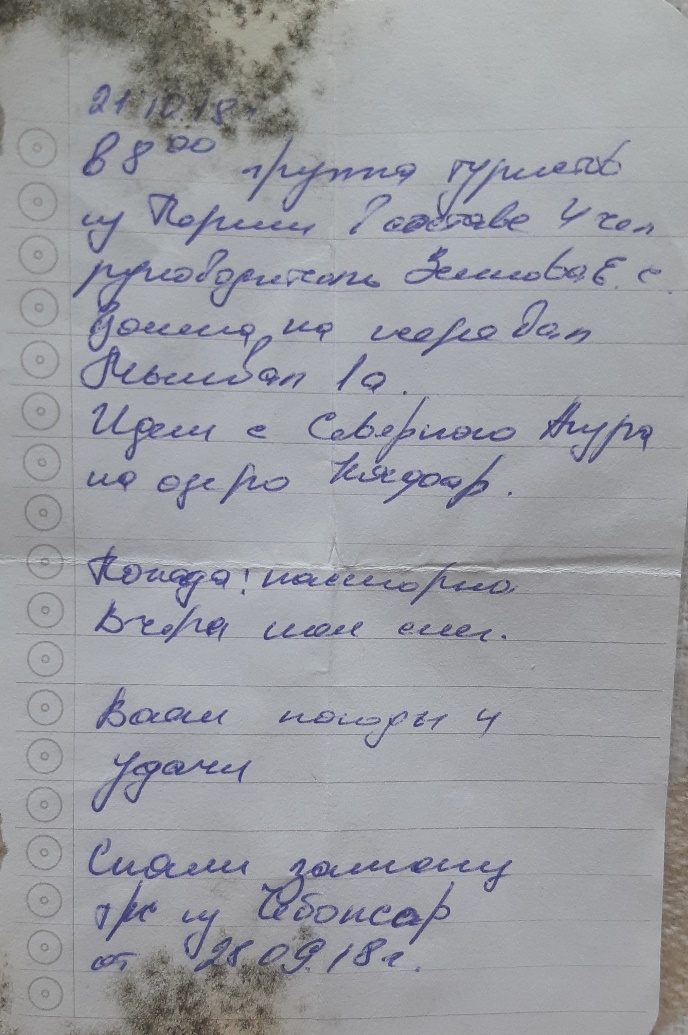 21.10.18г
в 8 00 группа туристов
из Перми в составе 4 чел
руководитель Земнова Е. С.
Вошла на перевал
1а.
Идем с Северного
на озеро
Погода: пасмурно
Вчера шел снег.
Вам погоды и
удачи
Сняли записку
т/к из Чебоксар
от 28.09.18г.